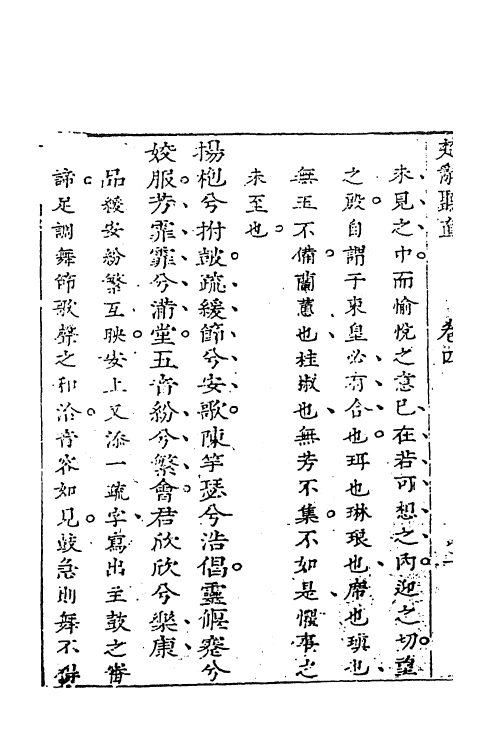 楚辭聽直 卷四
未見之中而愉悅之意已在若可想之內迎之切望
之殷自謂于東皇必有合也珥也琳琅也席也瑱也
無玉不備蘭蕙也桂椒也無芳不集不如是慢事之
未至也
揚枹兮拊鼓疏緩節兮安歌陳竽瑟兮浩倡靈偃蹇兮
姣服芳霏霏兮滿堂五音紛兮繁會君欣欣兮樂康
品緩安紛繁互映安上又添一疏字寫出主鼓之審
諦足調舞節歌聲之和洽音容如見鼓急則舞不